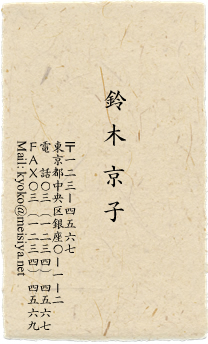 鈴木京子
〒一二三ー四五六七
東京都中央区銀座〇ー一ー二
電 話〇三(一二三四)四五六七
ＦＡＸ〇三(一二三四)四五六九
Mail: kyoko@meisiya.net